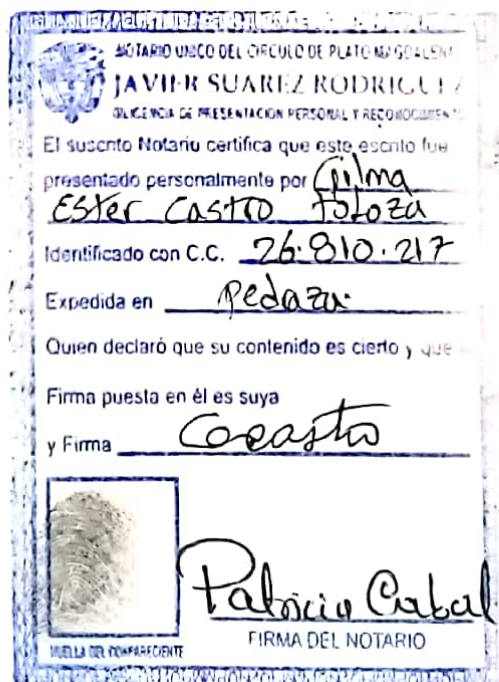 NOTARIO UNICO DEL CIRCULO DE PLATO MAGDALENA
JAVIER SUAREZ RODRIGUEZ
DILIGENCIA DE PRESENTACION PERSONAL Y RECONOCIMIENTO
El suscrito Notario certifica que este escrito fue
presentado personalmente por Gilma
Ester Castro Toloza
Identificado con C.C. 26.810.217
Expedida en Pedraza
Quien declaró que su contenido es cierto y que
Firma puesta en él es suya
y Firma
HUELLA DEL COMPARECIENTE
Patricia Cabal
FIRMA DEL NOTARIO